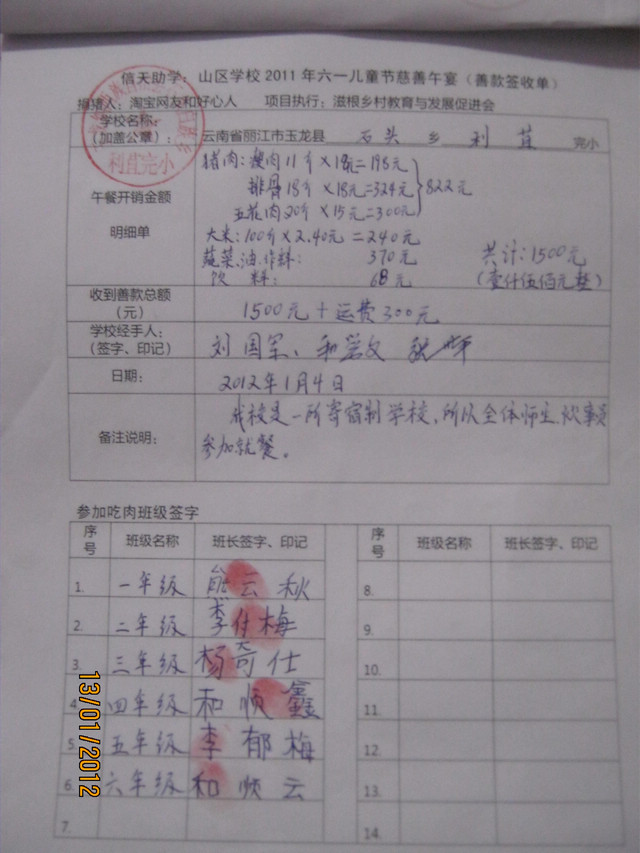 信天助学：山区学校2011年六一儿童节慈善午宴（善款签收单）
捐赠人：淘宝网友和好心人 项目执行：滋根乡村教育与发展促进会
学校名称：
（加盖公章）： 云南省丽江市玉龙县 石头 乡 利苴 完小
利苴完小
午餐开销金额
明细单
猪肉：瘦肉11斤×18元=198元
排骨18斤×18元=324元 822元
五花肉20斤×15元=300元
大米：100斤×2.40元=240元
蔬菜.油.作料： 370元 共计：1500元
饮 料： 68元 （壹仟伍佰元整）
收到善款总额
（元） 1500元+运费300元
学校经手人：
（签字、印记） 刘国军、
日期： 2012年1月4日
备注说明： 我校是一所寄宿制学校，所以全体师生.炊事员
参加就餐。
参加吃肉班级签字
序号 班级名称 班长签字、印记 序号 班级名称 班长签字、印记
1. 一年级 熊云秋 8.
2. 二年级 李付梅 9.
3. 三年级 杨奇仕 10.
4. 四年级 和顺鑫 11.
5. 五年级 李郁梅 12.
6. 六年级 和顺云 13.
7. 14.
13/01/2012